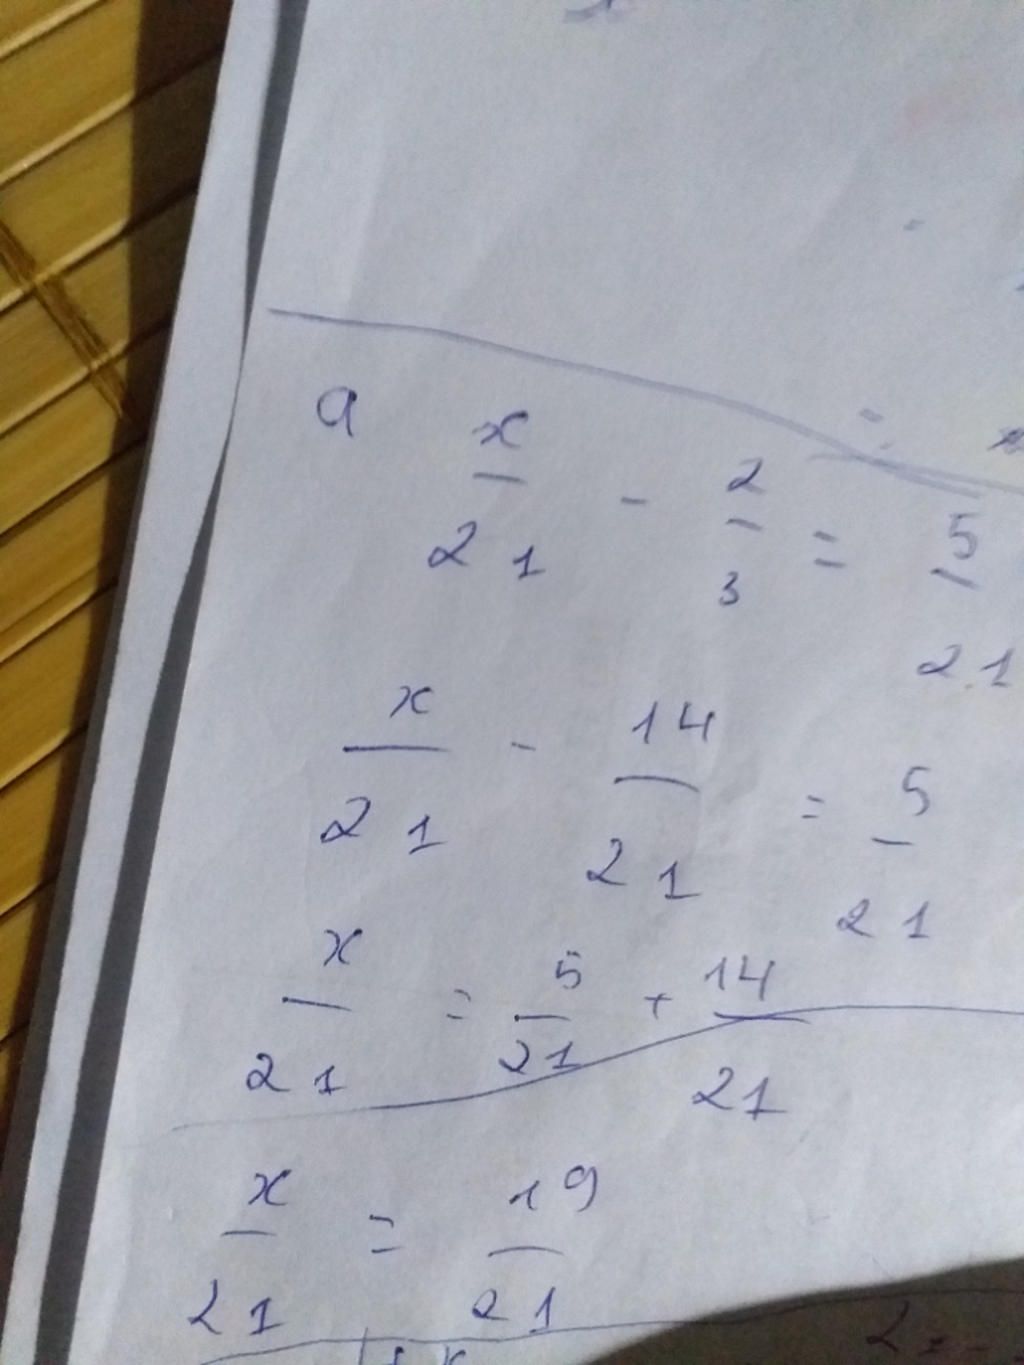 a x/21 - 2/3 = 5/21
x/21 - 14/21 = 5/21
x/21 = 5/21 + 14/21
x/21 = 19/21